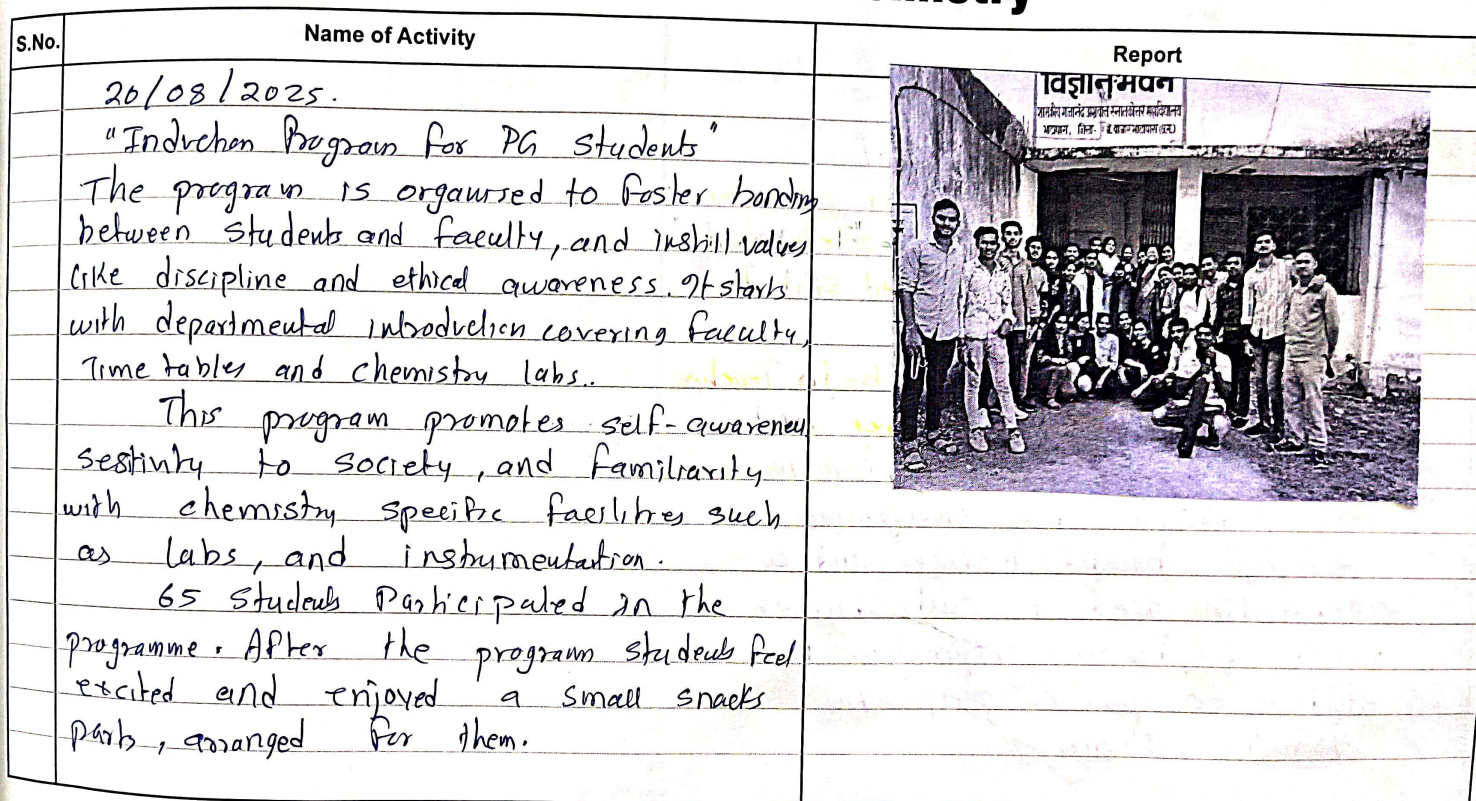 S.No.
Name of Activity
Report
20/08/2025.
"Induction Program for PG Students"
The program is organised to foster bonding
between Students and faculty, and instill values
like discipline and ethical awareness. It starts
with departmental introduction covering faculty,
Time tables and chemistry labs..
This program promotes self-awareness
sestivity to society, and familiarity
with chemistry specific facilities such
as labs, and instrumentation.
65 Students Participated in the
programme. After the program students feel
excited and enjoyed a small snacks
party, arranged for them.
विज्ञान भवन
स्नातकोत्तर महाविद्यालय
भाटापारा, जिला-